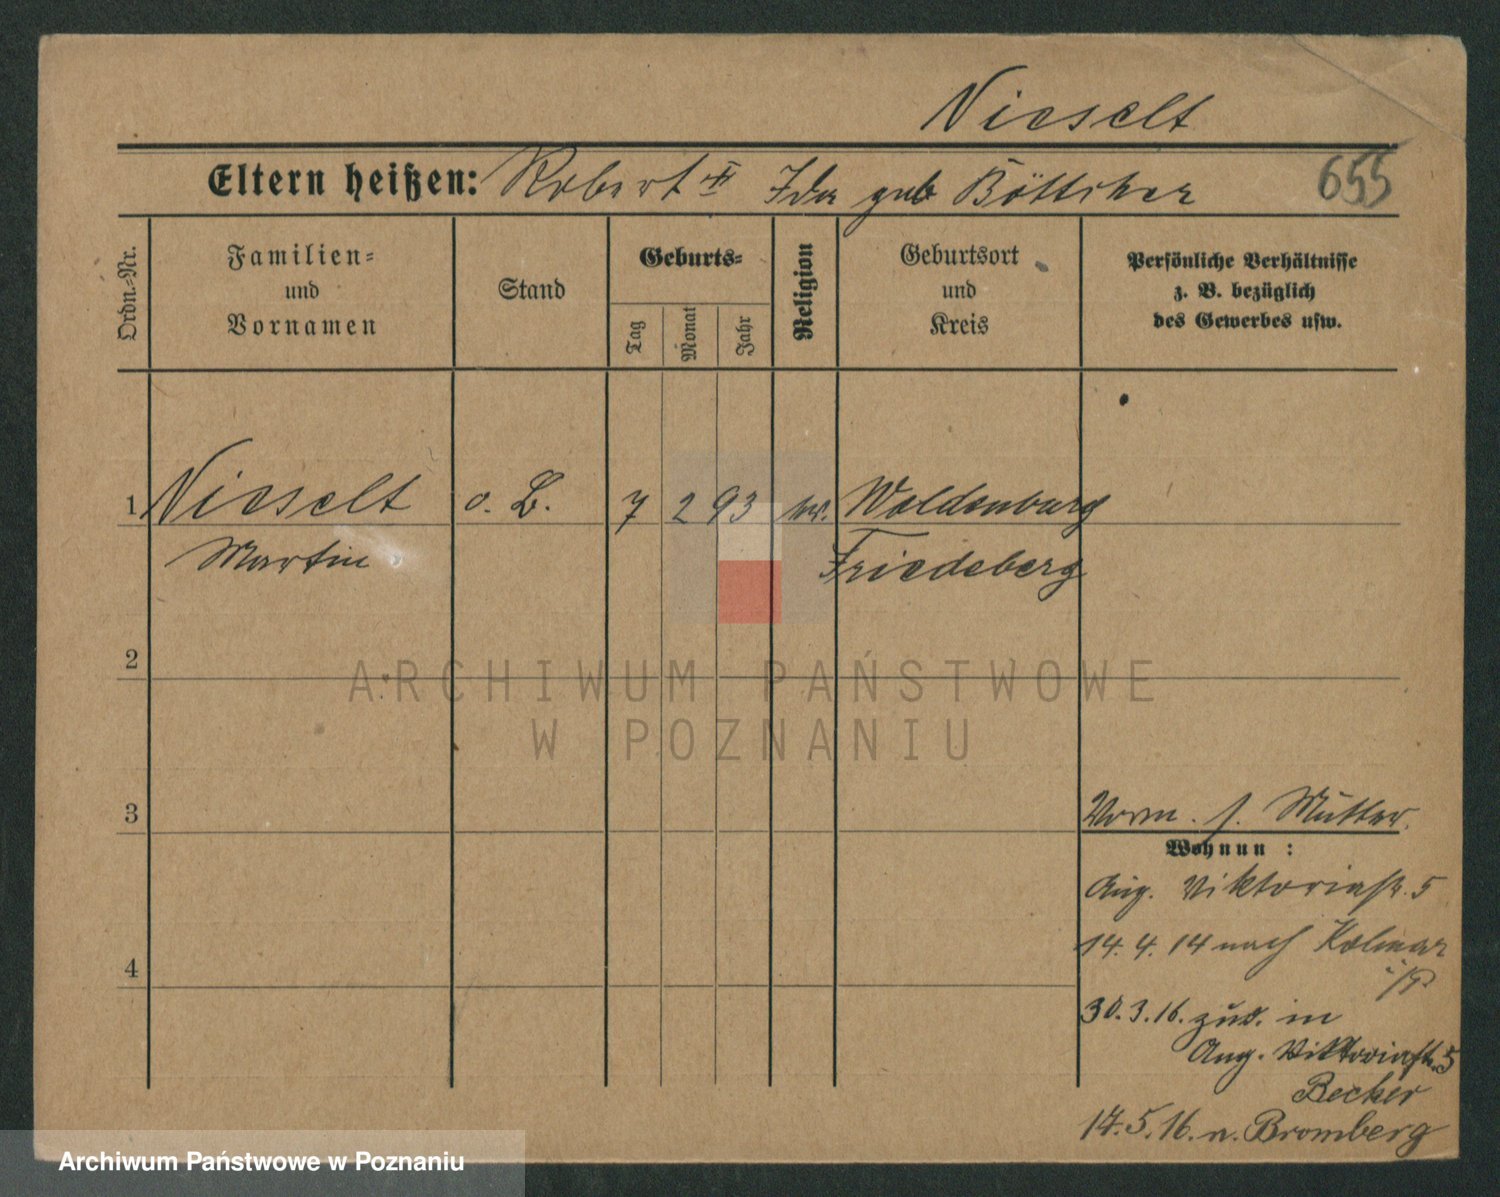 Nieselt
Eltern heißen: Robert u Ida geb Böttcher 655
Ordn.-Nr.
Familien-
und
Vornamen
Stand
Geburts-
Tag
Monat
Jahr
Religion
Geburtsort
und
Kreis
Persönliche Verhältnisse
z. B. bezüglich
des Gewerbes usw.
1 Nieselt o. B. 7 2 93 ev. Woldenburg
Martin Friedeberg
2
ARCHIWUM PAŃSTWOWE
W POZNANIU
3
Vorm. s. Mutter.
Wohnun :
Aug. Viktoriastr. 5
4
14. 4. 14 nach Kolmar
i/P
30. 3. 16. zur. in
Aug. Viktoriastr. 5
Becker
17. 5. 16. n. Bromberg
Archiwum Państwowe w Poznaniu